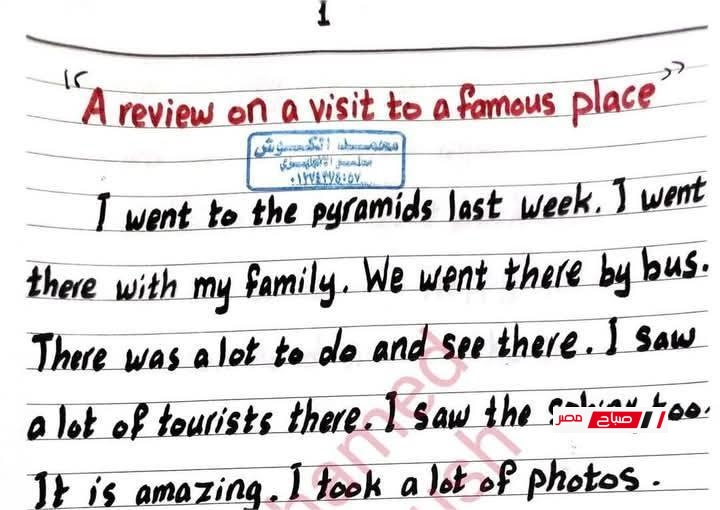 1
"A review on a visit to a famous place"
I went to the pyramids last week. I went
there with my family. We went there by bus.
There was a lot to do and see there. I saw
a lot of tourists there. I saw the too.
صباح مصر
It is amazing. I took a lot of photos.